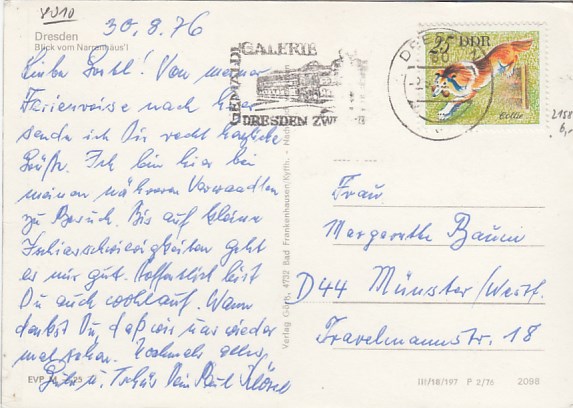 8010
30.8.76
Dresden
Blick vom Narrenhäus'l
Liebe Gretl! Von meiner
Ferienreise nach hier
sende ich Dir recht herzliche
Grüße. Ich bin hier bei
meinen näheren Verwandten
zu Besuch. Bis auf kleine
Schwierigkeiten geht
es mir gut. Hoffentlich bist
Du auch wohlauf. Wann
denkst Du, daß wir uns wieder
mal sehen. Nochmals alles
Gute u. Tschüs Dein Paul
EVP M 0,25
GEMÄLDE
GALERIE
DRESDEN ZW
DRE
25 DDR
Collie
2158
6,-
Frau
Margarethe Baum
D44 Münster/Westf.
Travelmannstr. 18
Verlag Görtz, 4732 Bad Frankenhausen/Kyffh.
III/18/197 P 2/76 2098